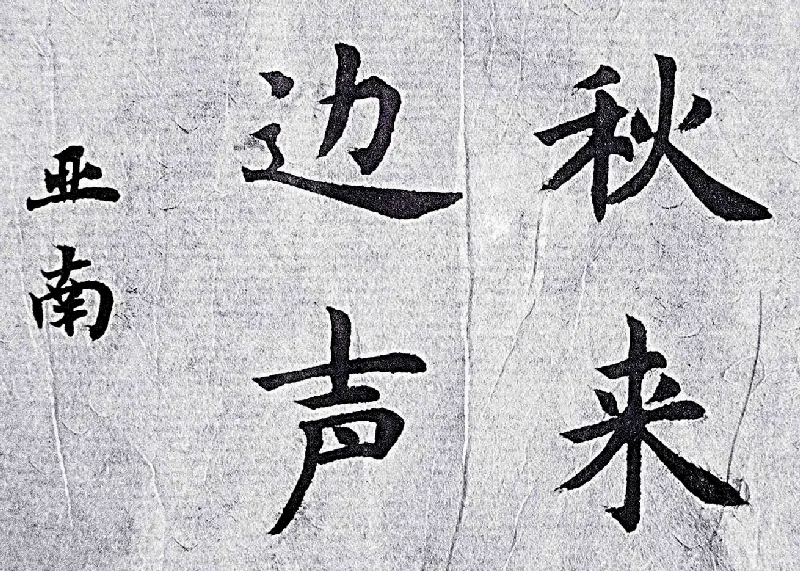 秋来
边声
亚南